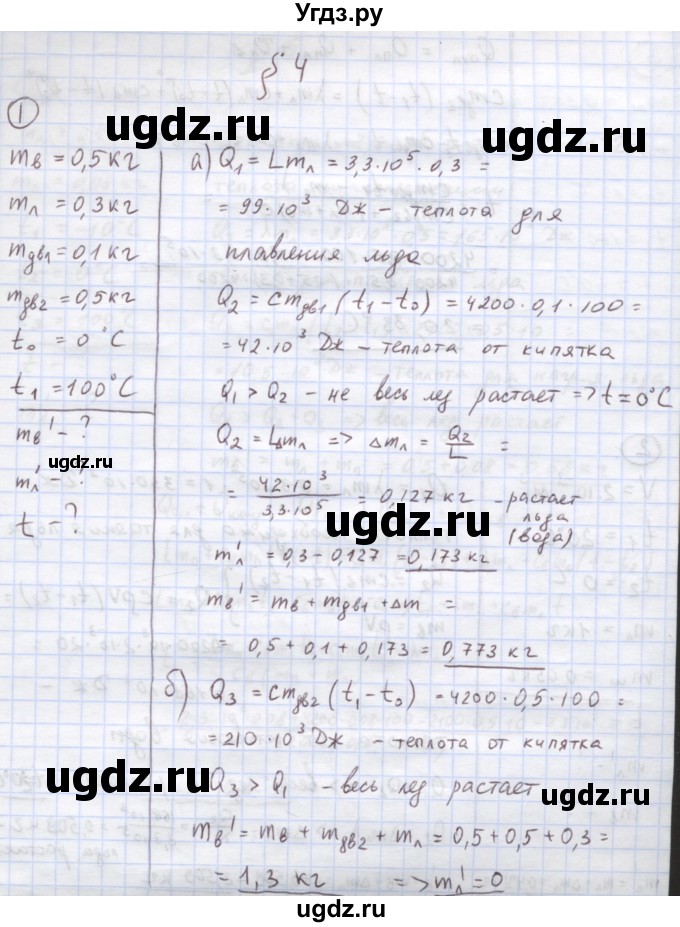 Угдз.ру
§ 4
1
ugdz.ru
ugdz.ru
mв = 0,5 кг
mл = 0,3 кг
mдв1 = 0,1 кг
mдв2 = 0,5 кг
t₀ = 0 °C
t₁ = 100°C
mв' - ?
ugdz.ru
mл' - ?
t - ?
а) Q₁ = Lmл = 3,3·10⁵·0,3 =
= 99·10³ Дж - теплота для
плавления льда
Q₂ = cmдв1 (t₁ - t₀) = 4200·0,1·100 =
= 42·10³ Дж - теплота от кипятка
Q₁ > Q₂ - не весь лед растает => t = 0°C
Q₂ = L△mл => △mл = Q₂/L =
= 42·10³/3,3·10⁵ = 0,127 кг - растает
льда
(вода)
ugdz.ru
mл' = 0,3 - 0,127 = 0,173 кг
ugdz.ru
mв' = mв + mдв1 + △m =
= 0,5 + 0,1 + 0,173 = 0,773 кг
б) Q₃ = cmдв2 (t₁ - t₀) = 4200·0,5·100 =
= 210·10³ Дж - теплота от кипятка
ugdz.ru
Q₃ > Q₁ - весь лед растает
ugdz.ru
mв' = mв + mдв2 + mл = 0,5 + 0,5 + 0,3 =
= 1,3 кг => mл' = 0
ugdz.ru
ugdz.ru